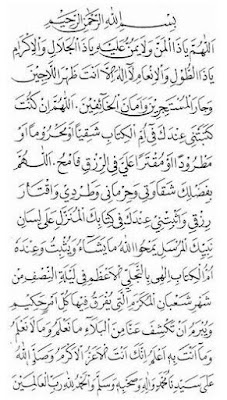 بِسْمِ اللهِ الرَّحْمٰنِ الرَّحِيْمِ
اَللّٰهُمَّ يَاذَا الْمَنِّ وَلَا يُمَنُّ عَلَيْهِ يَاذَا الْجَلَالِ وَالْاِكْرَامِ
يَاذَا الطَّوْلِ وَالْاِنْعَامِ لَا اِلٰهَ اِلَّا اَنْتَ ظَهْرَ اللَّاجِيْنَ
وَجَارَ الْمُسْتَجِيْرِيْنَ وَاَمَانَ الْخَائِفِيْنَ. اَللّٰهُمَّ اِنْ كُنْتَ
كَتَبْتَنِيْ عِنْدَكَ فِيْ اُمِّ الْكِتَابِ شَقِيًّا اَوْ مَحْرُوْمًا اَوْ
مَطْرُوْدًا اَوْ مُقْتَرًّا عَلَيَّ فِي الرِّزْقِ فَامْحُ. اَللّٰهُمَّ
بِفَضْلِكَ شَقَاوَتِيْ وَحِرْمَانِيْ وَطَرْدِيْ وَاقْتَارَ
رِزْقِيْ وَاَثْبِتْنِيْ عِنْدَكَ فِيْ كِتَابِكَ الْمُنَزَّلِ عَلٰى لِسَانِ
نَبِيِّكَ الْمُرْسَلِ يَمْحُوا اللهُ مَا يَشَاءُ وَيُثْبِتُ وَعِنْدَهُ
اُمُّ الْكِتَابِ اِلٰهِيْ بِالتَّجَلِّي الْاَعْظَمِ فِيْ لَيْلَةِ النِّصْفِ مِنْ
شَهْرِ شَعْبَانَ الْمُكَرَّمِ الَّتِيْ يُفْرَقُ فِيْهَا كُلُّ اَمْرٍ حَكِيْمٍ
وَيُبْرَمُ اَنْ تَكْشِفَ عَنَّا مِنَ الْبَلَاءِ مَا نَعْلَمُ وَمَا لَا نَعْلَمُ
وَمَا اَنْتَ بِهِ اَعْلَمُ اِنَّكَ اَنْتَ الْاَعَزُّ الْاَكْرَمُ وَصَلَّى اللهُ
عَلٰى سَيِّدِنَا مُحَمَّدٍ وَاٰلِهِ وَصَحْبِهِ وَسَلَّمَ وَالْحَمْدُ لِلّٰهِ رَبِّ الْعَالَمِيْنَ